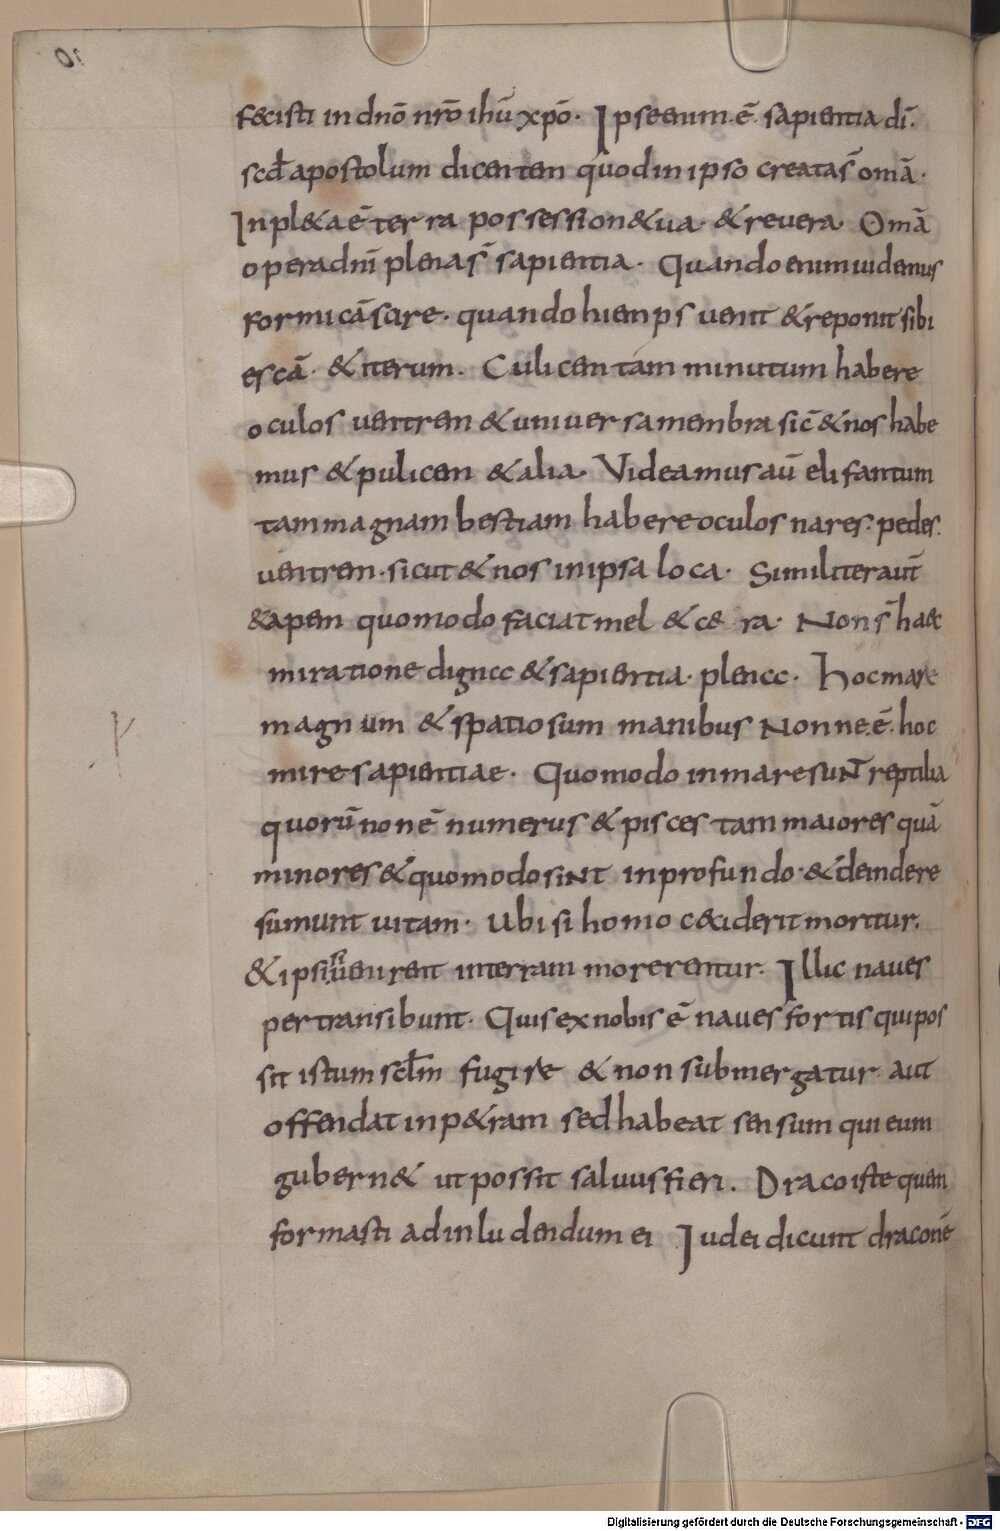 fecisti in dnō nrō ihū xpō. Ipse enim ē sapientia dī.
scđ apostolum dicentem quod in ipso creata s̄ omā.
Inpl&a ē terra possession& ua. & revera. Omā
opera dnī plena s̄ sapientia. Quando enim uidemus
formicā scire. quando hiemps venit & reponit sibi
escā. & iterum. Culicem tam minutum habere
oculos ventrem & universa membra sic̄ & nos habe
mus & pulicem & alia. Videamus aū elifantum
tam magnam bestiam habere oculos nares. pedes.
ventrem. sicut & nos in ipsa loca. Similiter aut̄
& apem quomodo faciat mel & ce ra. Non s̄ haec
miratione dignae & sapientia. plenae. Hoc mare
magnum & spatiosum manibus Nonne ē. hoc
mire sapientiae. Quomodo in mare sunt reptilia
quorū non ē numerus & pisces tam maiores quā
minores & quomodo sint in profundo. & deindere
sumunt vitam. Ubi si homo c&ciderit moritur.
& ipsi si venirent in terram morerentur. Illic naves
pertransibunt. Quis ex nobis ē naves fortis qui pos
sit istum sclm̄ fugire & non submergatur aut
offendat in p&ram sed habeat sensum qui eum
gubern& ut possit salvus fieri. Draco iste quem
formasti ad inludendum ei Iudei dicunt draconē
Digitalisierung gefördert durch die Deutsche Forschungsgemeinschaft - DFG